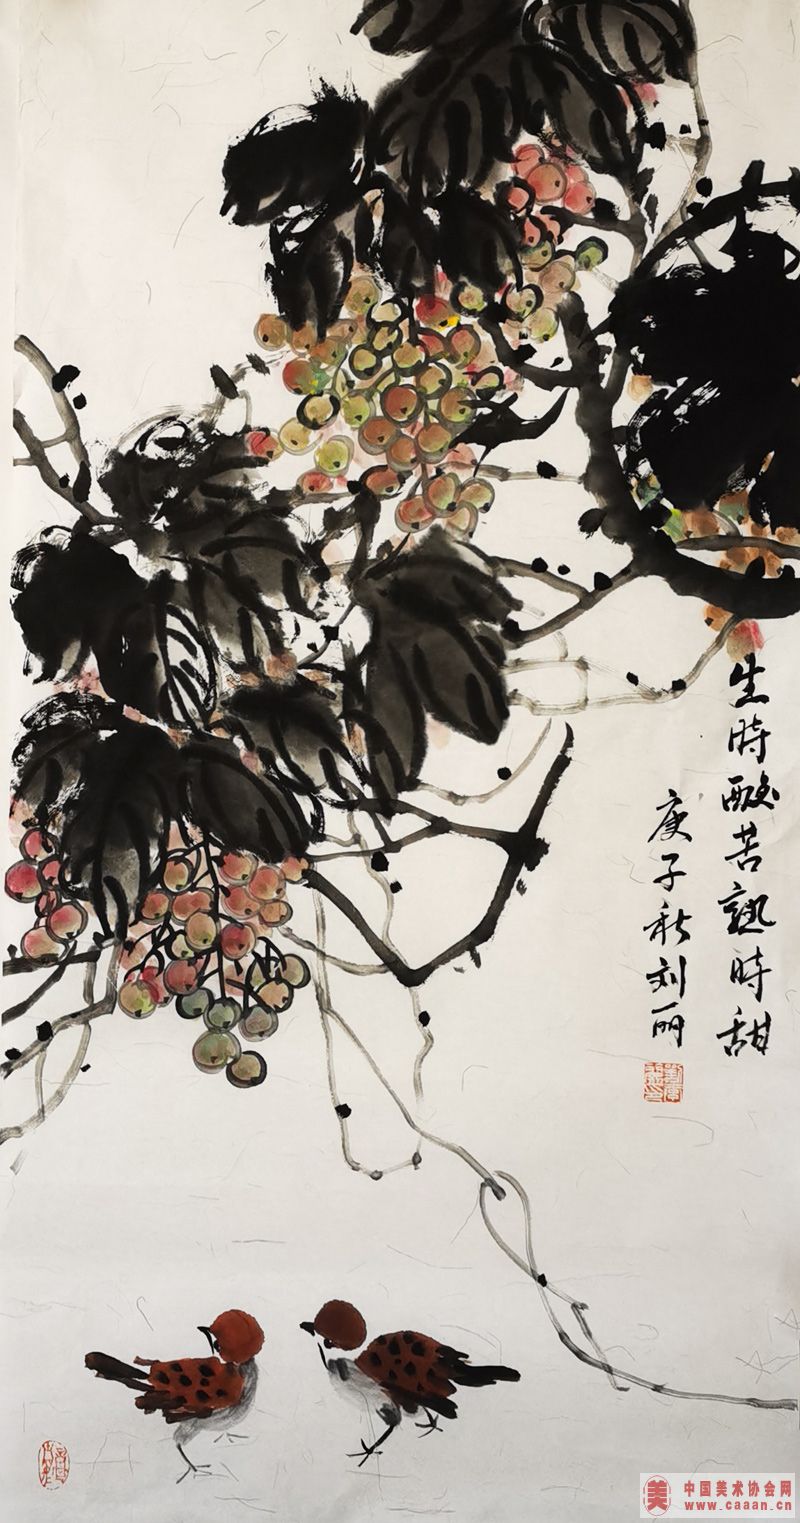 生時酸苦熟時甜
庚子秋刘丽
美 中国美术协会网
www.caaan.cn